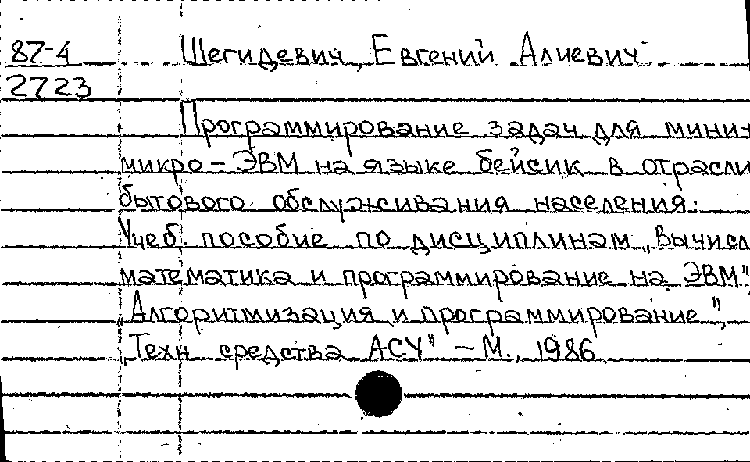 87-4 Шегидевич, Евгений Алиевич
2723
Программирование задач для мини-
микро-ЭВМ на языке бейсик в отрасли
бытового обслуживания населения:
Учеб. пособие по дисциплинам „Вычисл
математика и программирование на ЭВМ",
„Алгоритмизация и программирование",
„Техн средства АСУ" – М., 1986